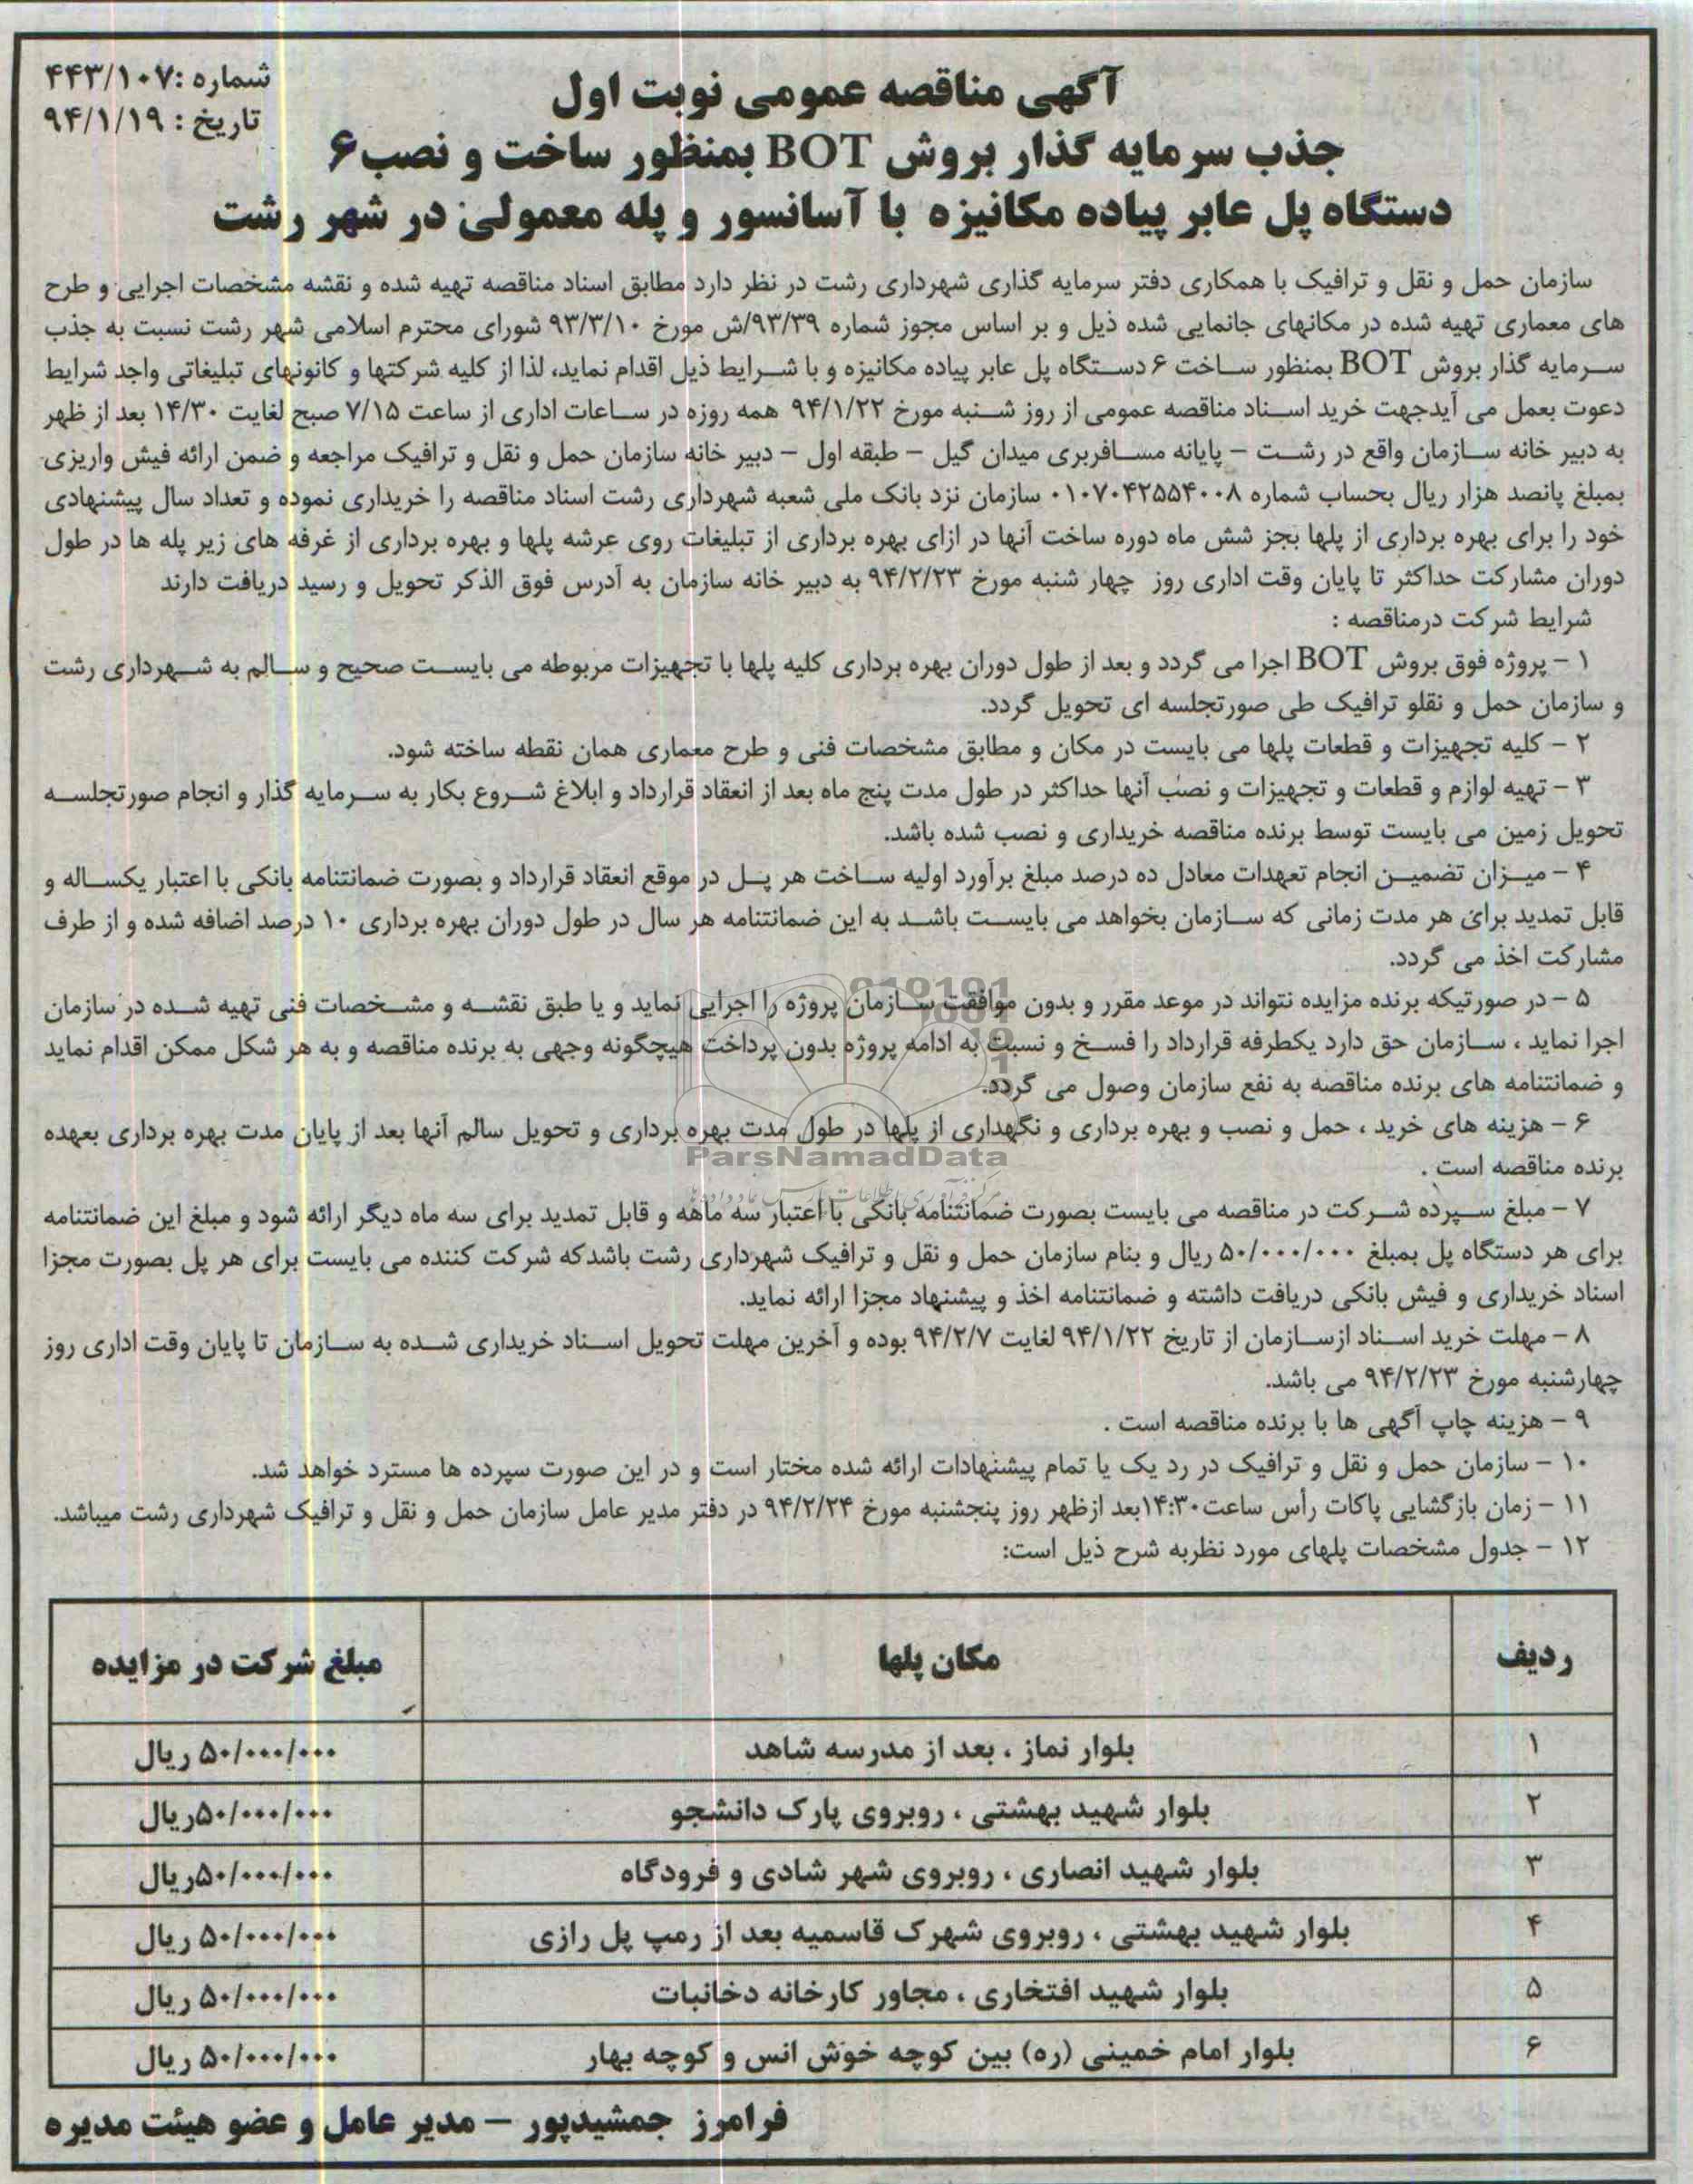 شماره :۴۴۳/۱۰۷
تاریخ : ۹۴/۱/۱۹
آگهی مناقصه عمومی نوبت اول
جذب سرمایه گذار بروش BOT بمنظور ساخت و نصب۶
دستگاه پل عابر پیاده مکانیزه با آسانسور و پله معمولی در شهر رشت
سازمان حمل و نقل و ترافیک با همکاری دفتر سرمایه گذاری شهرداری رشت در نظر دارد مطابق اسناد مناقصه تهیه شده و نقشه مشخصات اجرایی و طرح
های معماری تهیه شده در مکانهای جانمایی شده ذیل و بر اساس مجوز شماره ۹۳/۳۹/ش مورخ ۹۳/۳/۱۰ شورای محترم اسلامی شهر رشت نسبت به جذب
سرمایه گذار بروش BOT بمنظور ساخت ۶ دستگاه پل عابر پیاده مکانیزه و با شرایط ذیل اقدام نماید، لذا از کلیه شرکتها و کانونهای تبلیغاتی واجد شرایط
دعوت بعمل می آیدجهت خرید اسناد مناقصه عمومی از روز شنبه مورخ ۹۴/۱/۲۲ همه روزه در ساعات اداری از ساعت ۷/۱۵ صبح لغایت ۱۴/۳۰ بعد از ظهر
به دبیر خانه سازمان واقع در رشت – پایانه مسافربری میدان گیل – طبقه اول – دبیر خانه سازمان حمل و نقل و ترافیک مراجعه و ضمن ارائه فیش واریزی
بمبلغ پانصد هزار ریال بحساب شماره ۰۱۰۷۰۴۲۵۵۴۰۰۸ سازمان نزد بانک ملی شعبه شهرداری رشت اسناد مناقصه را خریداری نموده و تعداد سال پیشنهادی
خود را برای بهره برداری از پلها بجز شش ماه دوره ساخت آنها در ازای بهره برداری از تبلیغات روی عرشه پلها و بهره برداری از غرفه های زیر پله ها در طول
دوران مشارکت حداکثر تا پایان وقت اداری روز چهار شنبه مورخ ۹۴/۲/۲۳ به دبیر خانه سازمان به آدرس فوق الذکر تحویل و رسید دریافت دارند
شرایط شرکت درمناقصه :
۱ – پروژه فوق بروش BOT اجرا می گردد و بعد از طول دوران بهره برداری کلیه پلها با تجهیزات مربوطه می بایست صحیح و سالم به شهرداری رشت
و سازمان حمل و نقلو ترافیک طی صورتجلسه ای تحویل گردد.
۲ – کلیه تجهیزات و قطعات پلها می بایست در مکان و مطابق مشخصات فنی و طرح معماری همان نقطه ساخته شود.
۳ – تهیه لوازم و قطعات و تجهیزات و نصب آنها حداکثر در طول مدت پنج ماه بعد از انعقاد قرارداد و ابلاغ شروع بکار به سرمایه گذار و انجام صورتجلسه
تحویل زمین می بایست توسط برنده مناقصه خریداری و نصب شده باشد.
۴ – میزان تضمین انجام تعهدات معادل ده درصد مبلغ برآورد اولیه ساخت هر پل در موقع انعقاد قرارداد و بصورت ضمانتنامه بانکی با اعتبار یکساله و
قابل تمدید برای هر مدت زمانی که سازمان بخواهد می بایست باشد به این ضمانتنامه هر سال در طول دوران بهره برداری ۱۰ درصد اضافه شده و از طرف
مشارکت اخذ می گردد.
۵ – در صورتیکه برنده مزایده نتواند در موعد مقرر و بدون موافقت سازمان پروژه را اجرایی نماید و یا طبق نقشه و مشخصات فنی تهیه شده در سازمان
اجرا نماید ، سازمان حق دارد یکطرفه قرارداد را فسخ و نسبت به ادامه پروژه بدون پرداخت هیچگونه وجهی به برنده مناقصه و به هر شکل ممکن اقدام نماید
و ضمانتنامه های برنده مناقصه به نفع سازمان وصول می گردد.
۶ – هزینه های خرید ، حمل و نصب و بهره برداری و نگهداری از پلها در طول مدت بهره برداری و تحویل سالم آنها بعد از پایان مدت بهره برداری بعهده
ParsNamadData
برنده مناقصه است .
۷ – مبلغ سپرده شرکت در مناقصه می بایست بصورت ضمانتنامه بانکی با اعتبار سه ماهه و قابل تمدید برای سه ماه دیگر ارائه شود و مبلغ این ضمانتنامه
برای هر دستگاه پل بمبلغ ۵۰/۰۰۰/۰۰۰ ریال و بنام سازمان حمل و نقل و ترافیک شهرداری رشت باشدکه شرکت کننده می بایست برای هر پل بصورت مجزا
اسناد خریداری و فیش بانکی دریافت داشته و ضمانتنامه اخذ و پیشنهاد مجزا ارائه نماید.
۸ – مهلت خرید اسناد ازسازمان از تاریخ ۹۴/۱/۲۲ لغایت ۹۴/۲/۷ بوده و آخرین مهلت تحویل اسناد خریداری شده به سازمان تا پایان وقت اداری روز
چهارشنبه مورخ ۹۴/۲/۲۳ می باشد.
۹ – هزینه چاپ آگهی ها با برنده مناقصه است .
۱۰ – سازمان حمل و نقل و ترافیک در رد یک یا تمام پیشنهادات ارائه شده مختار است و در این صورت سپرده ها مسترد خواهد شد.
۱۱ – زمان بازگشایی پاکات رأس ساعت۱۴:۳۰بعد ازظهر روز پنجشنبه مورخ ۹۴/۲/۲۴ در دفتر مدیر عامل سازمان حمل و نقل و ترافیک شهرداری رشت میباشد.
۱۲ – جدول مشخصات پلهای مورد نظربه شرح ذیل است:
ردیف مکان پلها مبلغ شرکت در مزایده
۱ بلوار نماز ، بعد از مدرسه شاهد ۵۰/۰۰۰/۰۰۰ ریال
۲ بلوار شهید بهشتی ، روبروی پارک دانشجو ۵۰/۰۰۰/۰۰۰ریال
۳ بلوار شهید انصاری ، روبروی شهر شادی و فرودگاه ۵۰/۰۰۰/۰۰۰ریال
۴ بلوار شهید بهشتی ، روبروی شهرک قاسمیه بعد از رمپ پل رازی ۵۰/۰۰۰/۰۰۰ ریال
۵ بلوار شهید افتخاری ، مجاور کارخانه دخانبات ۵۰/۰۰۰/۰۰۰ ریال
۶ بلوار امام خمینی (ره) بین کوچه خوش انس و کوچه بهار ۵۰/۰۰۰/۰۰۰ ریال
فرامرز جمشیدپور – مدیر عامل و عضو هیئت مدیره